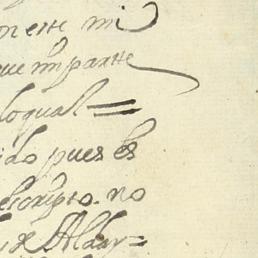 en este mi
que mi parte
loqual =
ido pues es
escripto. no
de Alday=